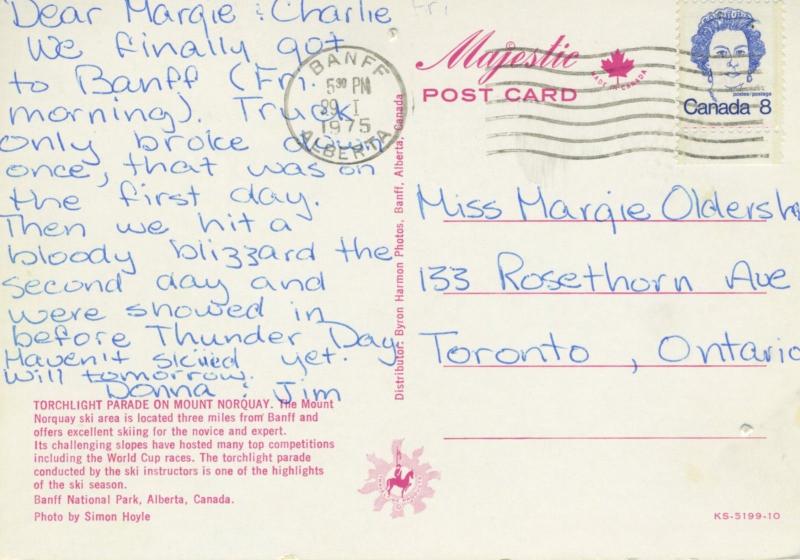 Dear Margie & Charlie
We finally got
to Banff (Fri.
morning). Truck
only broke down
once, that was on
the first day.
Then we hit a
bloody blizzard the
second day and
were showed in
before Thunder Day
Haven't skiied yet.
Will tomorrow.
Donna & Jim
TORCHLIGHT PARADE ON MOUNT NORQUAY. The Mount
Norquay ski area is located three miles from Banff and
offers excellent skiing for the novice and expert.
Its challenging slopes have hosted many top competitions
including the World Cup races. The torchlight parade
conducted by the ski instructors is one of the highlights
of the ski season.
Banff National Park, Alberta, Canada.
Photo by Simon Hoyle
Distributor: Byron Harmon Photos, Banff, Alberta, Canada
Fri
BANFF
5:30 PM
I
1975
ALBERTA
Majestic
MADE IN CANADA
POST CARD
postes/postage
Canada 8
Miss Margie Oldersh
133 Rosethorn Ave
Toronto, Ontario
KS-5199-10